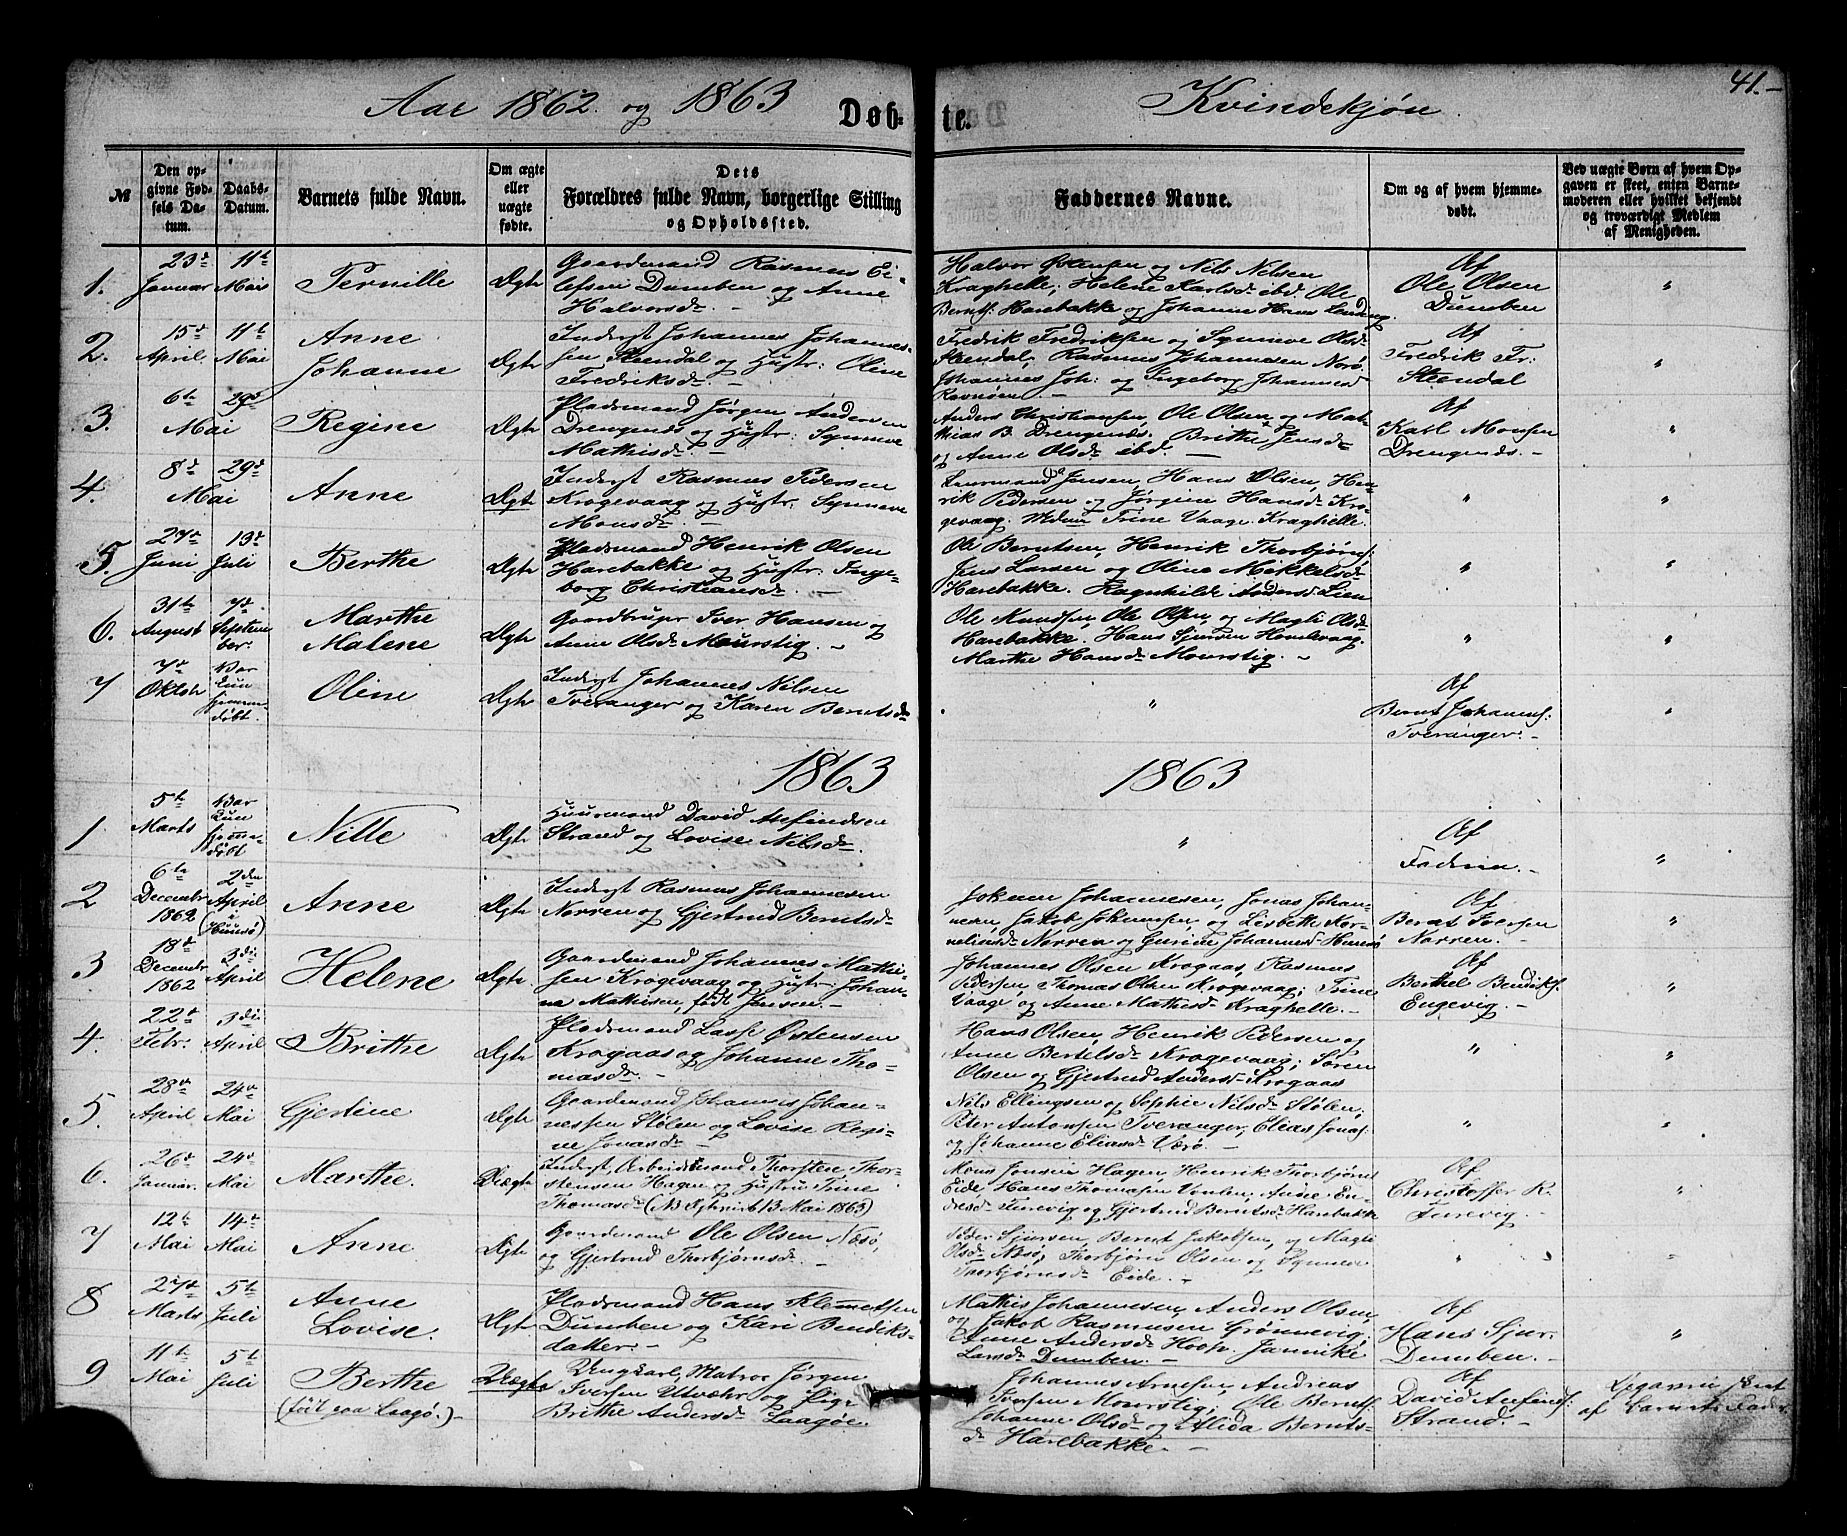 Aar 1862 og 1863 Døb-te. Kvindekjøn 41.-
№
Den op-
givne Fød-
sels Da-
tum.
Daabs-
Datum.
Barnets fulde Navn.
Om ægte
eller
uægte
fødte.
Dets
Forældres fulde Navn, borgerlige Stilling
og Opholdssted.
Faddernes Navne.
Om og af hvem hjemme-
døbt.
Ved uægte Børn af hvem Op-
gaven er skeet, enten Barne-
moderen eller hvilket bekjendt
og troværdigt Medlem
af Menigheden.
1.
23d
Januar
11te
Mai
Pernille
Ægte
Gaardmand Rasmus Ei-
lefsen Dumben og Anne
Halvorsdr. -
Halvor Østensen og Nils Nilsen
Kraghelle; Helene Karlsd. ibd. Ole
Bernts: Harebakke og Johanne Hans
Af
Ole Olsen
Dumben
"
2.
15d
April.
11te
Mai
Anne
Johanne
Ægte
Inderst Johannes Johannes-
sen Steendal og Hustr: Oline
Fredriksdr. -
Fredrik Fredriksen og Synneve Olsd.
Steendal; Rasmus Johannesen Norø.
Johannes Joh: og Ingeborg Johannesd
Ravnøen -
Af
Fredrik Fr:
Steendal
"
3.
6te
Mai
29de
Regine
Ægte
Pladsmand Jørgen Andersen
Drengenes og Hustr: Synneve
Mathisdr. -
Anders Christiansen, Ole Olsen og Mat-
hias B. Drengenes. Brithe Jensdr
og Anne Olsdr ibd. -
Af
Karl Monsen
Drengenes. -
"
4.
8d
Mai
29d
Anne
Ægte
Inderst Rasmus Pedersen
Krogevaag og Hustr: Synneve
Monsdr. -
Jensen, Hans Olsen, Hen-
rik Pedersen og Jørgine Hansdr Kro-
gevaag. Madm Trine Vaage. Kraghelle.
"
"
5.
27de
Juni
13d
Juli
Berthe
Ægte
Pladsmand Henrik Olsen
Harebakke og Hustr: Inge-
borg Christiansdr. -
Ole Berntsen, Henrik Thorbjørns:
Jens Larsen og Oline Mikkelsdr
Harebakke. Ragnhilde Andersd Lien
"
"
6.
31te
August
7d
Septem
ber.
Marthe
Malene
Ægte
Gaardbruger Iver Hansen og
Anne Olsdr Mourstig. -
Ole Knudsen, Ole Olsen, og Magli Olsd.
Harebakke. Hans Sjursen Hovlevaag.
Marthe Hansdr Mourstig. -
"
"
7
7d
Oktob
Var
Kun
hjemme
døbt.
Oline
Ægte
Inderst Johannes Nilsen
Tveranger og Karen Berntsdr
"
Af
Bernt Johanns:
Tveranger. -
"
1863
1863
1
5te
Marts
Var
Kun
hjemme-
døbt
Nille
Ægte
Huusmand David Asefindsen
Strand og Lovise Nilsdr.
"
Af
Faderen. -
"
2
6te
Decembr
1862
2den
April
(i
Huusø)
Anne
Ægte
Inderst Rasmus Johannesen
Norren og Gjertrud Berntsdr.
Jokum Johannesen, Jonas Johan-
nesen, Jakob Jokumsen, og Lisbeth Kor-
neliusdr Norren og Gurine Johannesd Huusø
Af
Bernt Iversen
Norren. -
"
3
18d
Decembr
1862
3die
April
Helene
Ægte
Gaardmand Johannes Mathi-
sen Krogevaag og Hustr: Johan-
na Mathisen, født Jensen. -
Johannes Olsen Krogaas, Rasmus
Pedersen, Thomas Olsen Krogevaag; Trine
Vaage og Anne Mathisdr Kraghelle. -
Af
Berthel Bendiks:
Engevig
"
4.
22d
Febr.
3die
April
Brithe
Ægte
Pladsmand Lasse Østensen
Krogaas og Johanne Tho-
masdr. -
Hans Olsen, Henrik Pedersen og
Anne Bertelsdr Krogevaag; Søren
Olsen og Gjertrud Andersdr Krogaas
"
"
5.
28de
April
24de
Mai
Gjertine
Ægte
Gaardmand Johannes Johan-
nessen Stølen og Lovise Regi-
ne Jonasdr -
Nils Ellingsen og Sophie Nilsdr Stølen;
Peter Antonsen Tveranger, Elias Jonas:
og Johanne Eliasdr Værø.
"
"
6.
26de
Januar.
24de
Mai
Marthe.
Uægte
Inderst, Arbeidsmand Thorsten Thor-
stensen Hagen og Hustru Trine
Thomasdr (NB Ægteviet 13. Mai 1863)
Mons Jonsen Hagen, Henrik Thorbjørns
Eide, Hans Thomasen Vonlen, Anne En-
dresdr Furevig og Gjertrud Berntsdr Harebakke
Af
Christoffer R.
Furevig. -
"
7
12te
Mai
14de
Mai
Anne
Ægte
Gaardmand Ole Olsen Næsø,
og Gjertrud Thorbjørnsdr. -
Peder Sjursen, Bernt Jakobsen, og Magli
Olsdr Næsø, Thorbjørn Olsen og Synneve
Thorbjørnsdr Eide. -
"
"
8
27de
Marts
5te
Juli
Anne
Lovise.
Ægte
Pladsmand Hans Klemetsen
Dumben og Kari Bendiks-
datter. -
Mathis Johannesen, Anders Olsen,
og Jakob Rasmusen Grønnevig;
Anne Andersdr Hoop. Jannike
Larsdr Dumben. -
Af
Hans Sjur.
Dumben. -
"
9
11te
Mai
5te
Juli
Berthe
(født paa Laagø.)-
Uægte
Ungkarl, Matros Jørgen
Iversen Utvær og Pige
Brithe Andersdr Laagøe.
Johannes Arnesen, Andreas
Iversen Mourstig; Ole Bernts:
Johanne Olsdr og Alida Bernts-
dr Harebakke. -
Af
David Asefinds:
Strand. -
Opgaven skeet
af barnets Fader.